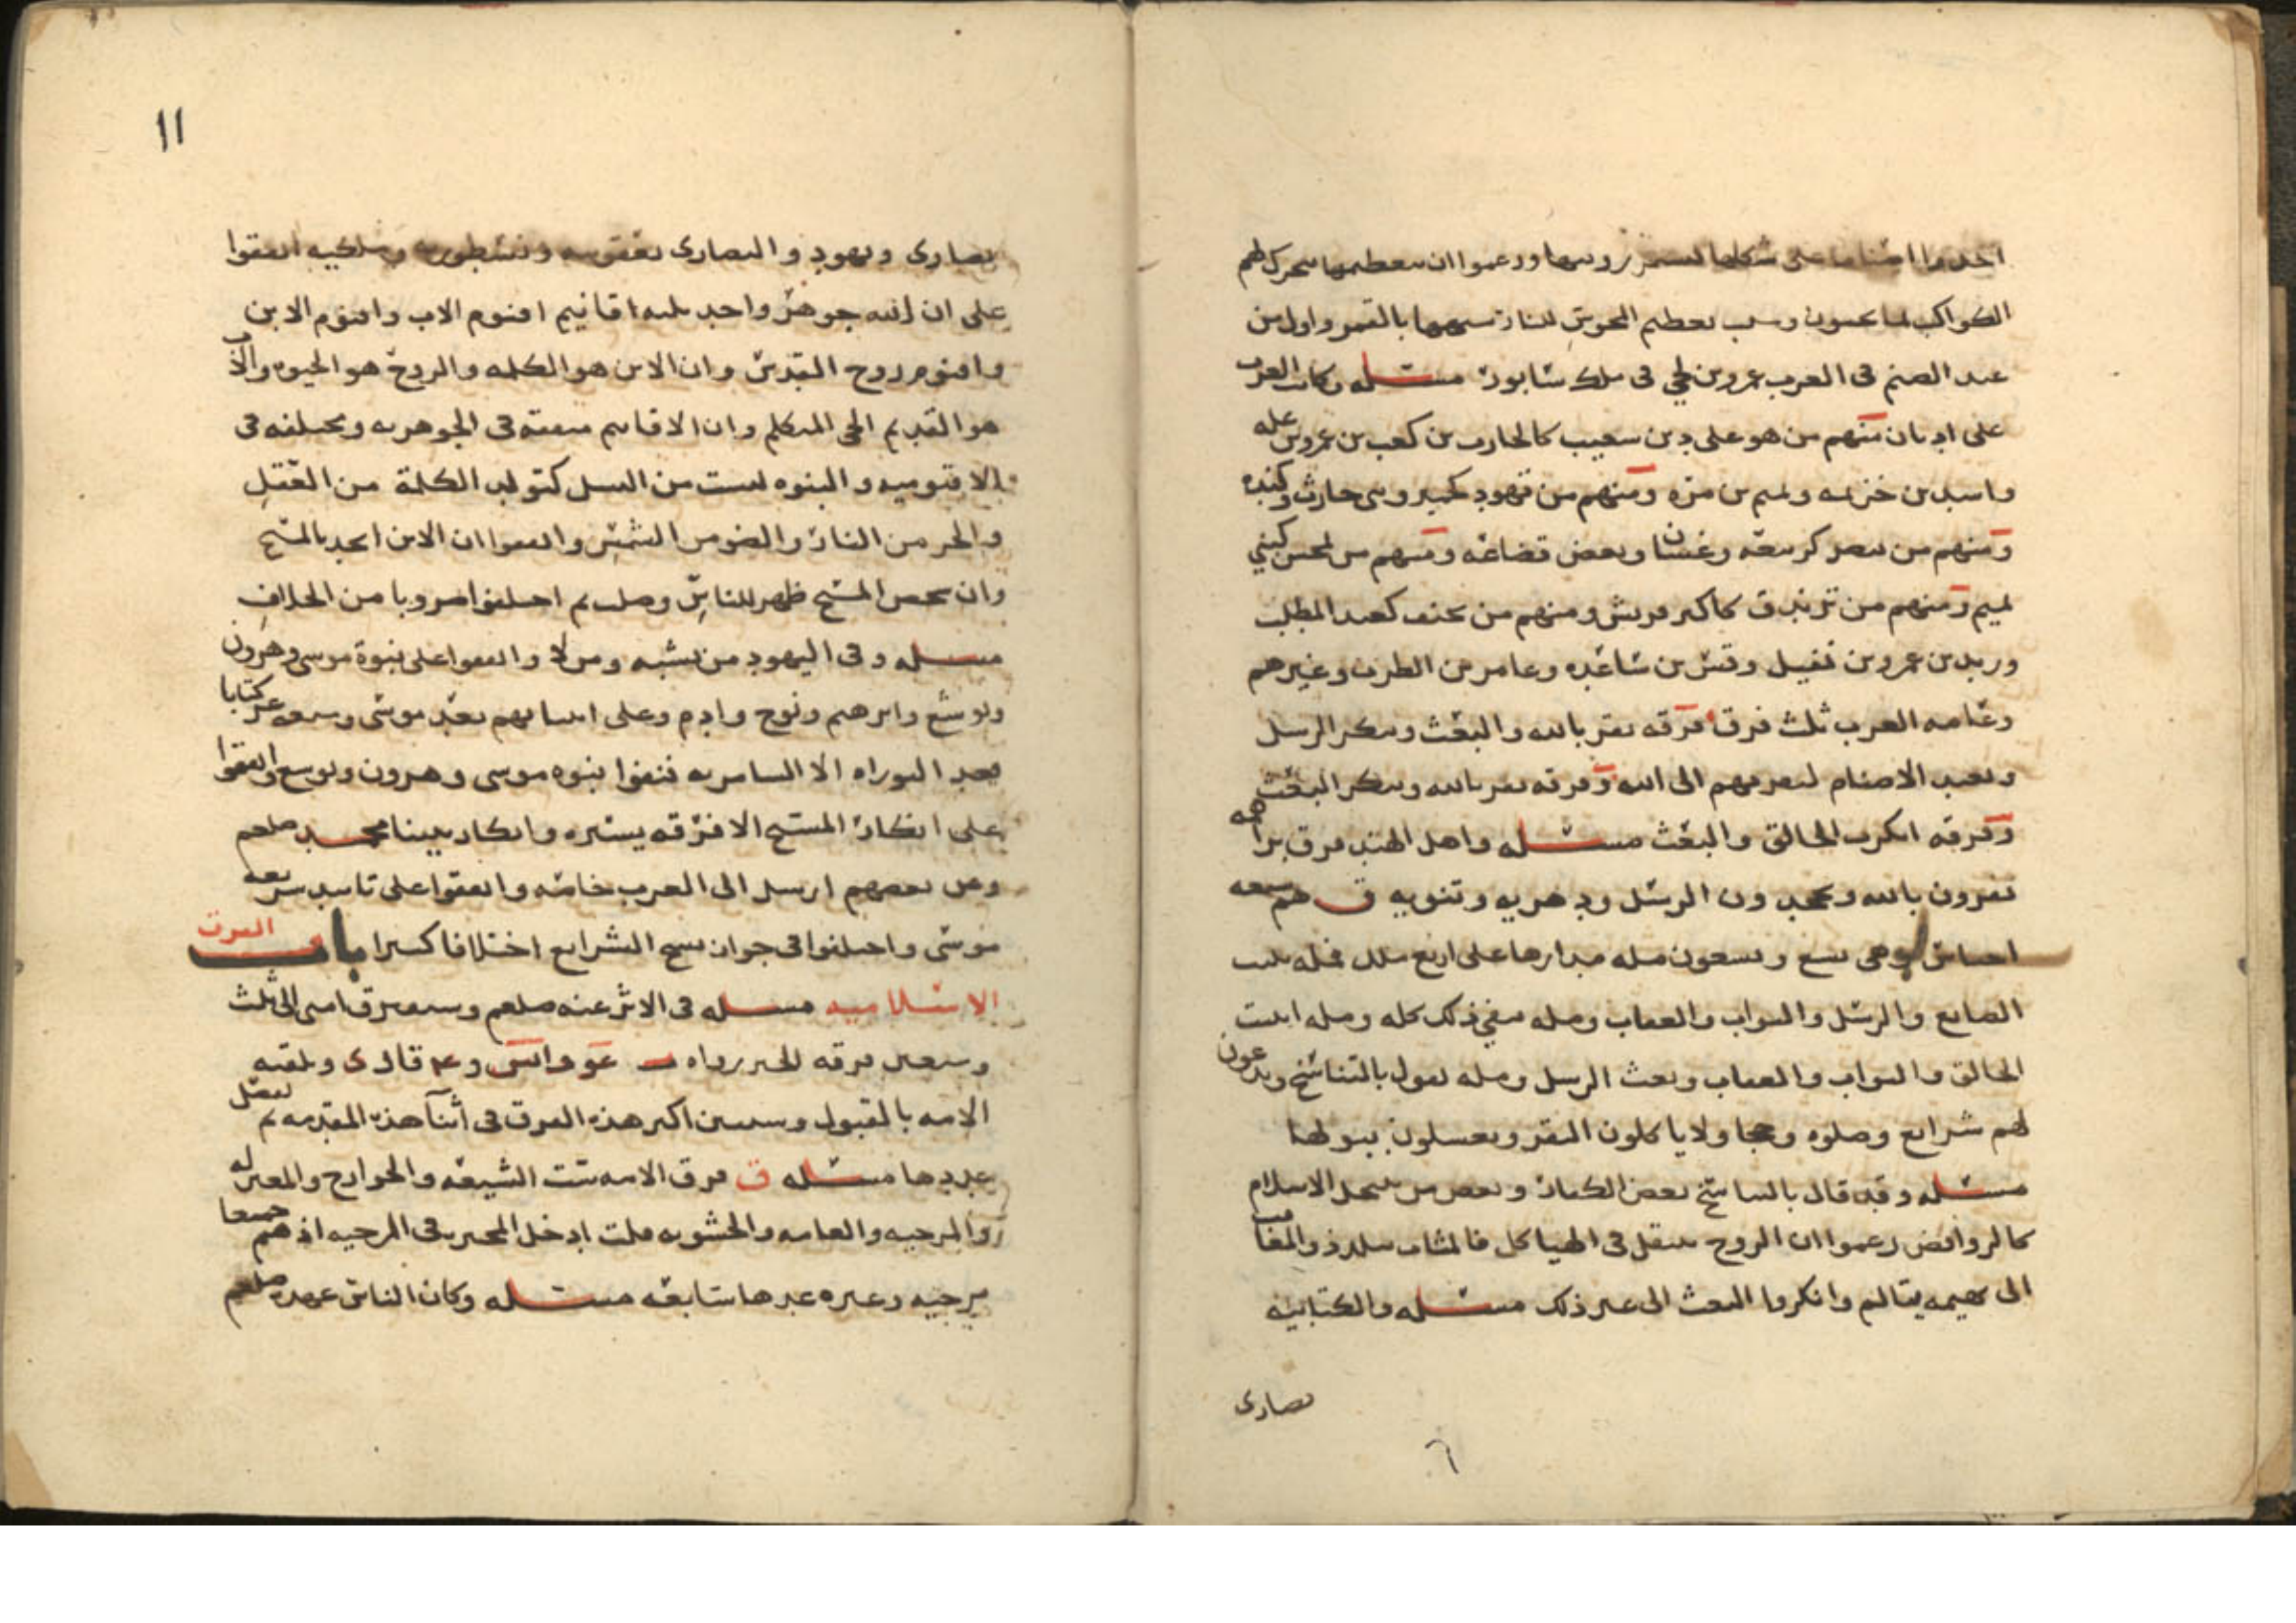 اتخذوا اصناما على شكلها لتستمر رويتها وزعموا ان بتعظيمها تتحرك لهم
الكواكب لما يحبون وسبب تعظيم المجوس للنار تشبيهها بالقمر واول من
عبد الصنم فى العرب عمرو بن لحي فى ملك شابور مسئله وكانت العرب
على اديان منهم من هو على دين شعيب كالحارث بن كعب بن عمرو بن عله
واسد بن خزيمه وتميم بن مره ومنهم من تهود كحمير وبنى حارث وكنده
ومنهم من تنصر كربيعه وغسان وبعض قضاعه ومنهم من تمجس كبني
تميم ومنهم من تزندق كاكثر قريش ومنهم من تحنف كعبد المطلب
وزيد بن عمرو بن نفيل وقس بن ساعده وعامر بن الظرب وغيرهم
وعامه العرب ثلث فرق فرقه تقر بالله والبعث وتنكر الرسل
وتعبد الاصنام لتقربهم الى الله وفرقه تقر بالله وتنكر البعث
وفرقه انكرت الخالق والبعث مسئله واهل الهند فرق براهمه
يقرون بالله ويجحدون الرسل ودهريه وثنويه ق هم سبعه
اجناس وهى تسع وتسعون مله مدارها على اربع ملل فمله تثبت
الصانع والرسل والثواب والعقاب ومله تنفي ذلك كله ومله اثبتت
الخالق والثواب والعقاب ونفت الرسل ومله تقول بالتناسخ ويدعون
لهم شرايع وصلوه وحجا ولا ياكلون البقر ويغسلون ببولها
مسئله وقد قال بالتناسخ بعض الكفار وبعض من ينتحل الاسلام
كالروافض زعموا ان الروح تنتقل فى الهياكل فالمثاب يتلذذ والمعاقب
الى بهيمه يتالم وانكروا البعث الى غير ذلك مسئله والكتابيه
نصارى
٦
11
نصارى ويهود والنصارى يعقوبيه ونسطوريه وملكيه اتفقوا
على ان الله جوهر واحد ثلثه اقانيم اقنوم الاب واقنوم الابن
واقنوم روح القدس وان الابن هو الكلمه والروح هو الحيوه والاب
هو القديم الحى المتكلم وان الاقانيم متفقه فى الجوهريه ومختلفه فى
الاقنوميه والبنوه ليست من النسل كتولد الكلمة من العقل
والحر من النار والضو من الشمس واتفقوا ان الابن اتحد بالمسيح
وان شخص المسيح ظهر للناس وصلب ثم اختلفوا ضروبا من الخلاف
مسئله وفى اليهود من يشبه ومن لا واتفقوا على نبوة موسى وهرون
ويوشع وابرهيم ونوح وادم وعلى انبيائهم بعد موسى وتسعه عشر كتابا
بعد التوراه الا السامريه فنفوا نبوه موسى وهرون ويوشع واتفقوا
على انكار المسيح الا فرقه يسيره وانكار نبينا محمد صلعم
وعن بعضهم ارسل الى العرب خاصه واتفقوا على تابيد شريعه
موسى واختلفوا فى جواز نسخ الشرايع اختلافا كثيرا باب الفرق
الاسلاميه مسئله فى الاثر عنه صلعم وستفترق امتى الى ثلث
وسبعين فرقه الخبر رواه عو وانس وعم قال ى وتلقته
الامه بالقبول وستبين اكثر هذه الفرق فى اثنآ هذه المقدمه ثم نفصل
عددها مسئله ق فرق الامه ست الشيعه والخوارج والمعتزله
والمرجيه والعامه والحشويه قلت ادخل المجبره فى المرجيه اذ هم جميعا
مرجيه وغيره عدها سابعه مسئله وكان الناس عهده صلعم